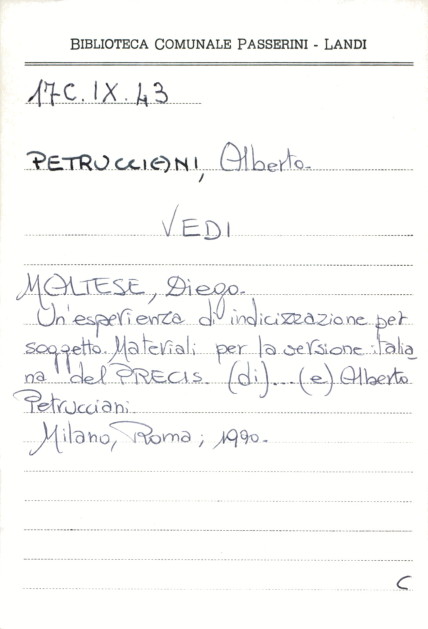 BIBLIOTECA COMUNALE PASSERINI - LANDI
17C.IX.43
PETRUCCIANI, Alberto.
VEDI
MALTESE, Diego.
Un'esperienza di indicizzazione per
soggetto. Materiali per la versione italia
na del PRECIS. (di)...(e) Alberto
Petrucciani.
Milano, Roma ; 1990.
C